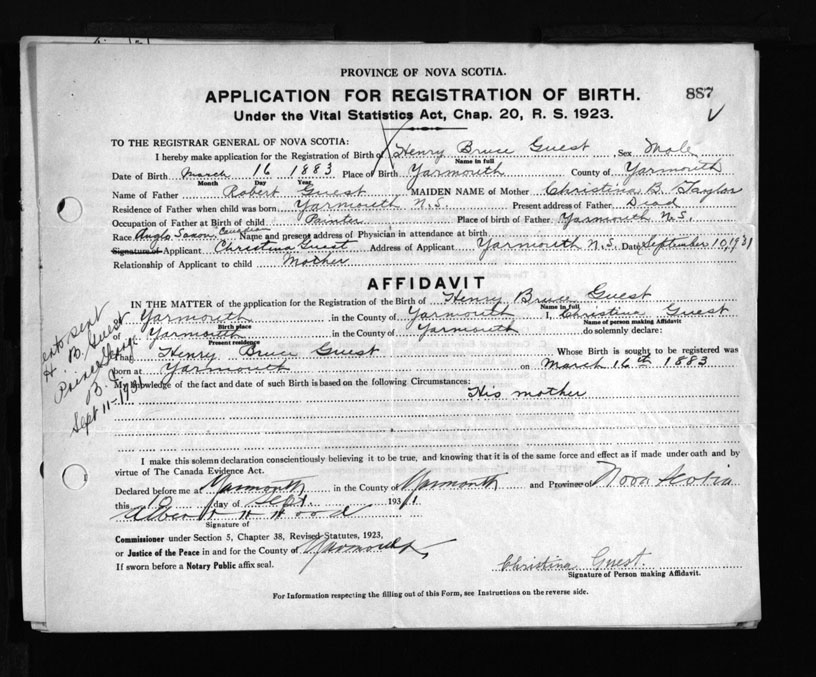 PROVINCE OF NOVA SCOTIA.
APPLICATION FOR REGISTRATION OF BIRTH. 887
Under the Vital Statistics Act, Chap. 20, R. S. 1923.
TO THE REGISTRAR GENERAL OF NOVA SCOTIA:
I hereby make application for the Registration of Birth of Henry Bruce Guest, Sex Male
Name in full
Date of Birth March 16 1883 Place of Birth Yarmouth County of Yarmouth
Month Day Year
Name of Father Robert Guest MAIDEN NAME of Mother Christina B. Taylor
Residence of Father when child was born Yarmouth N.S. Present address of Father Dead
Occupation of Father at Birth of child Painter Place of birth of Father Yarmouth N.S.
Race Anglo Saxon Canadian Name and present address of Physician in attendance at birth
Signature of Applicant Christina Guest Address of Applicant Yarmouth N.S. Date September 10, 1931
Relationship of Applicant to child Mother
AFFIDAVIT
IN THE MATTER of the application for the Registration of the Birth of Henry Bruce Guest
Name in full
of Yarmouth in the County of Yarmouth I, Christina Guest
Birth place Name of person making Affidavit
of Yarmouth in the County of Yarmouth do solemnly declare:
Present residence
That Henry Bruce Guest Whose Birth is sought to be registered was
born at Yarmouth on March 16th 1883
My knowledge of the fact and date of such Birth is based on the following Circumstances:
His mother
sent
H. B. Guest
Prince George
B.
Sept 11-1931
I make this solemn declaration conscientiously believing it to be true, and knowing that it is of the same force and effect as if made under oath and by
virtue of The Canada Evidence Act.
Declared before me at Yarmouth in the County of Yarmouth and Province of Nova Scotia
this 10 day of Sept. 1931
Hood
Signature of
Commissioner under Section 5, Chapter 38, Revised Statutes, 1923,
or Justice of the Peace in and for the County of Yarmouth
If sworn before a Notary Public affix seal.
Christina Guest.
Signature of Person making Affidavit.
For Information respecting the filling out of this Form, see Instructions on the reverse side.